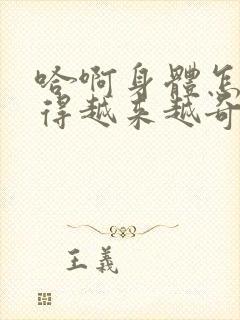 哈啊身體怎
得越来越奇
王義